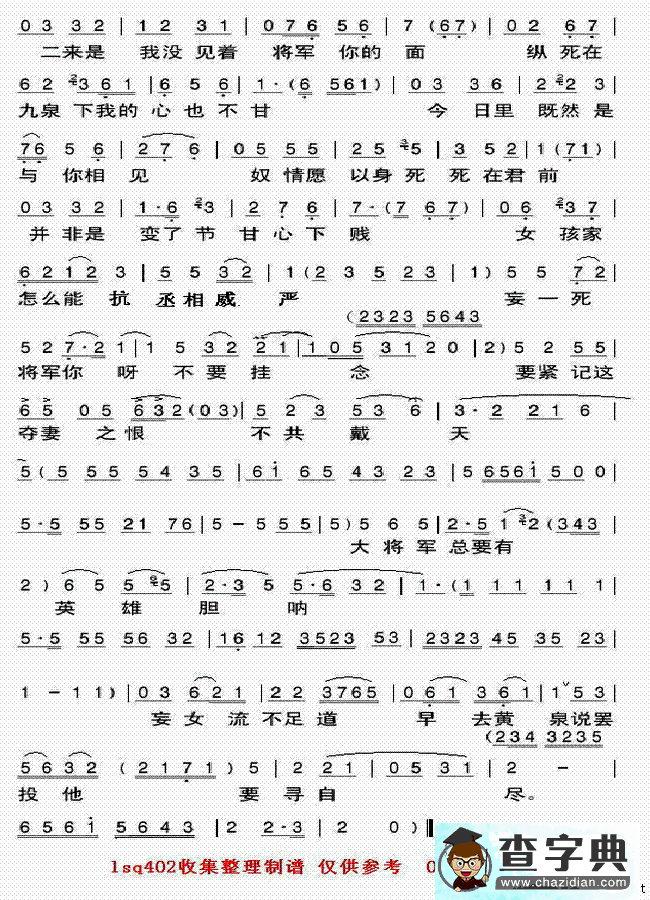 0 3 3 2 | 1 2 3 1 | 0 7 6 5 6 | 7 ( 6 7 ) | 0 2 6 7 |
二来是 我没见着 将军你的面 纵死在
6 2 3 6 1 | 6 5 6 | 1 · ( 6 5 6 1 ) | 0 3 3 6 | 2 2 3 |
九泉下我的心也不甘 今日里既然是
7 6 5 6 | 2 7 6 | 0 5 5 5 | 2 5 5 | 3 5 2 | 1 ( 7 1 ) |
与你相见 奴情愿以身死死在君前
0 3 3 2 | 1 · 6 3 | 2 7 6 | 7 · ( 7 6 7 ) | 0 6 3 7 |
并非是变了节甘心下贱 女孩家
6 2 1 2 3 | 5 5 3 2 | 1 ( 2 3 5 2 3 | 1 ) 5 5 7 2 |
怎么能抗丞相威严 妾一死
( 2 3 2 3 5 6 4 3
5 2 7 · 2 1 | 1 5 3 2 2 1 | 1 0 5 3 1 2 0 | 2 ) 5 2 5 5 |
将军你呀不要挂念 要紧记这
6 5 0 5 6 3 2 ( 0 3 ) | 5 2 3 5 3 6 | 3 · 2 2 1 6 |
夺妻之恨 不共戴天
5 ( 5 5 5 5 4 3 5 | 6 1 6 5 4 3 2 3 | 5 6 5 6 1 5 0 0 |
5 · 5 5 5 2 1 7 6 | 5 – 5 5 5 | 5 ) 5 6 5 | 2 · 5 1 2 ( 3 4 3 |
大将军总要有
2 ) 6 5 5 5 | 2 · 3 5 5 · 6 3 2 | 1 · ( 1 1 1 1 1 |
英雄胆呐
5 · 5 5 5 5 6 3 2 | 1 6 1 2 3 5 2 3 5 3 | 2 3 2 3 4 5 3 5 2 3 |
1 – 1 1 ) | 0 3 6 2 1 | 2 2 3 7 6 5 | 0 6 1 3 6 1 | 1 5 3 |
妾女流不足道 早去黄泉说罢
( 2 3 4 3 2 3 5
5 6 3 2 ( 2 1 7 1 ) | 5 2 2 1 | 0 5 3 1 | 2 –
投他 要寻自尽。
6 5 6 1 5 6 4 3 | 2 2 · 3 | 2 0 ) ‖
lsq402收集整理制谱 仅供参考 0
查字典
www.chazidian.com
t